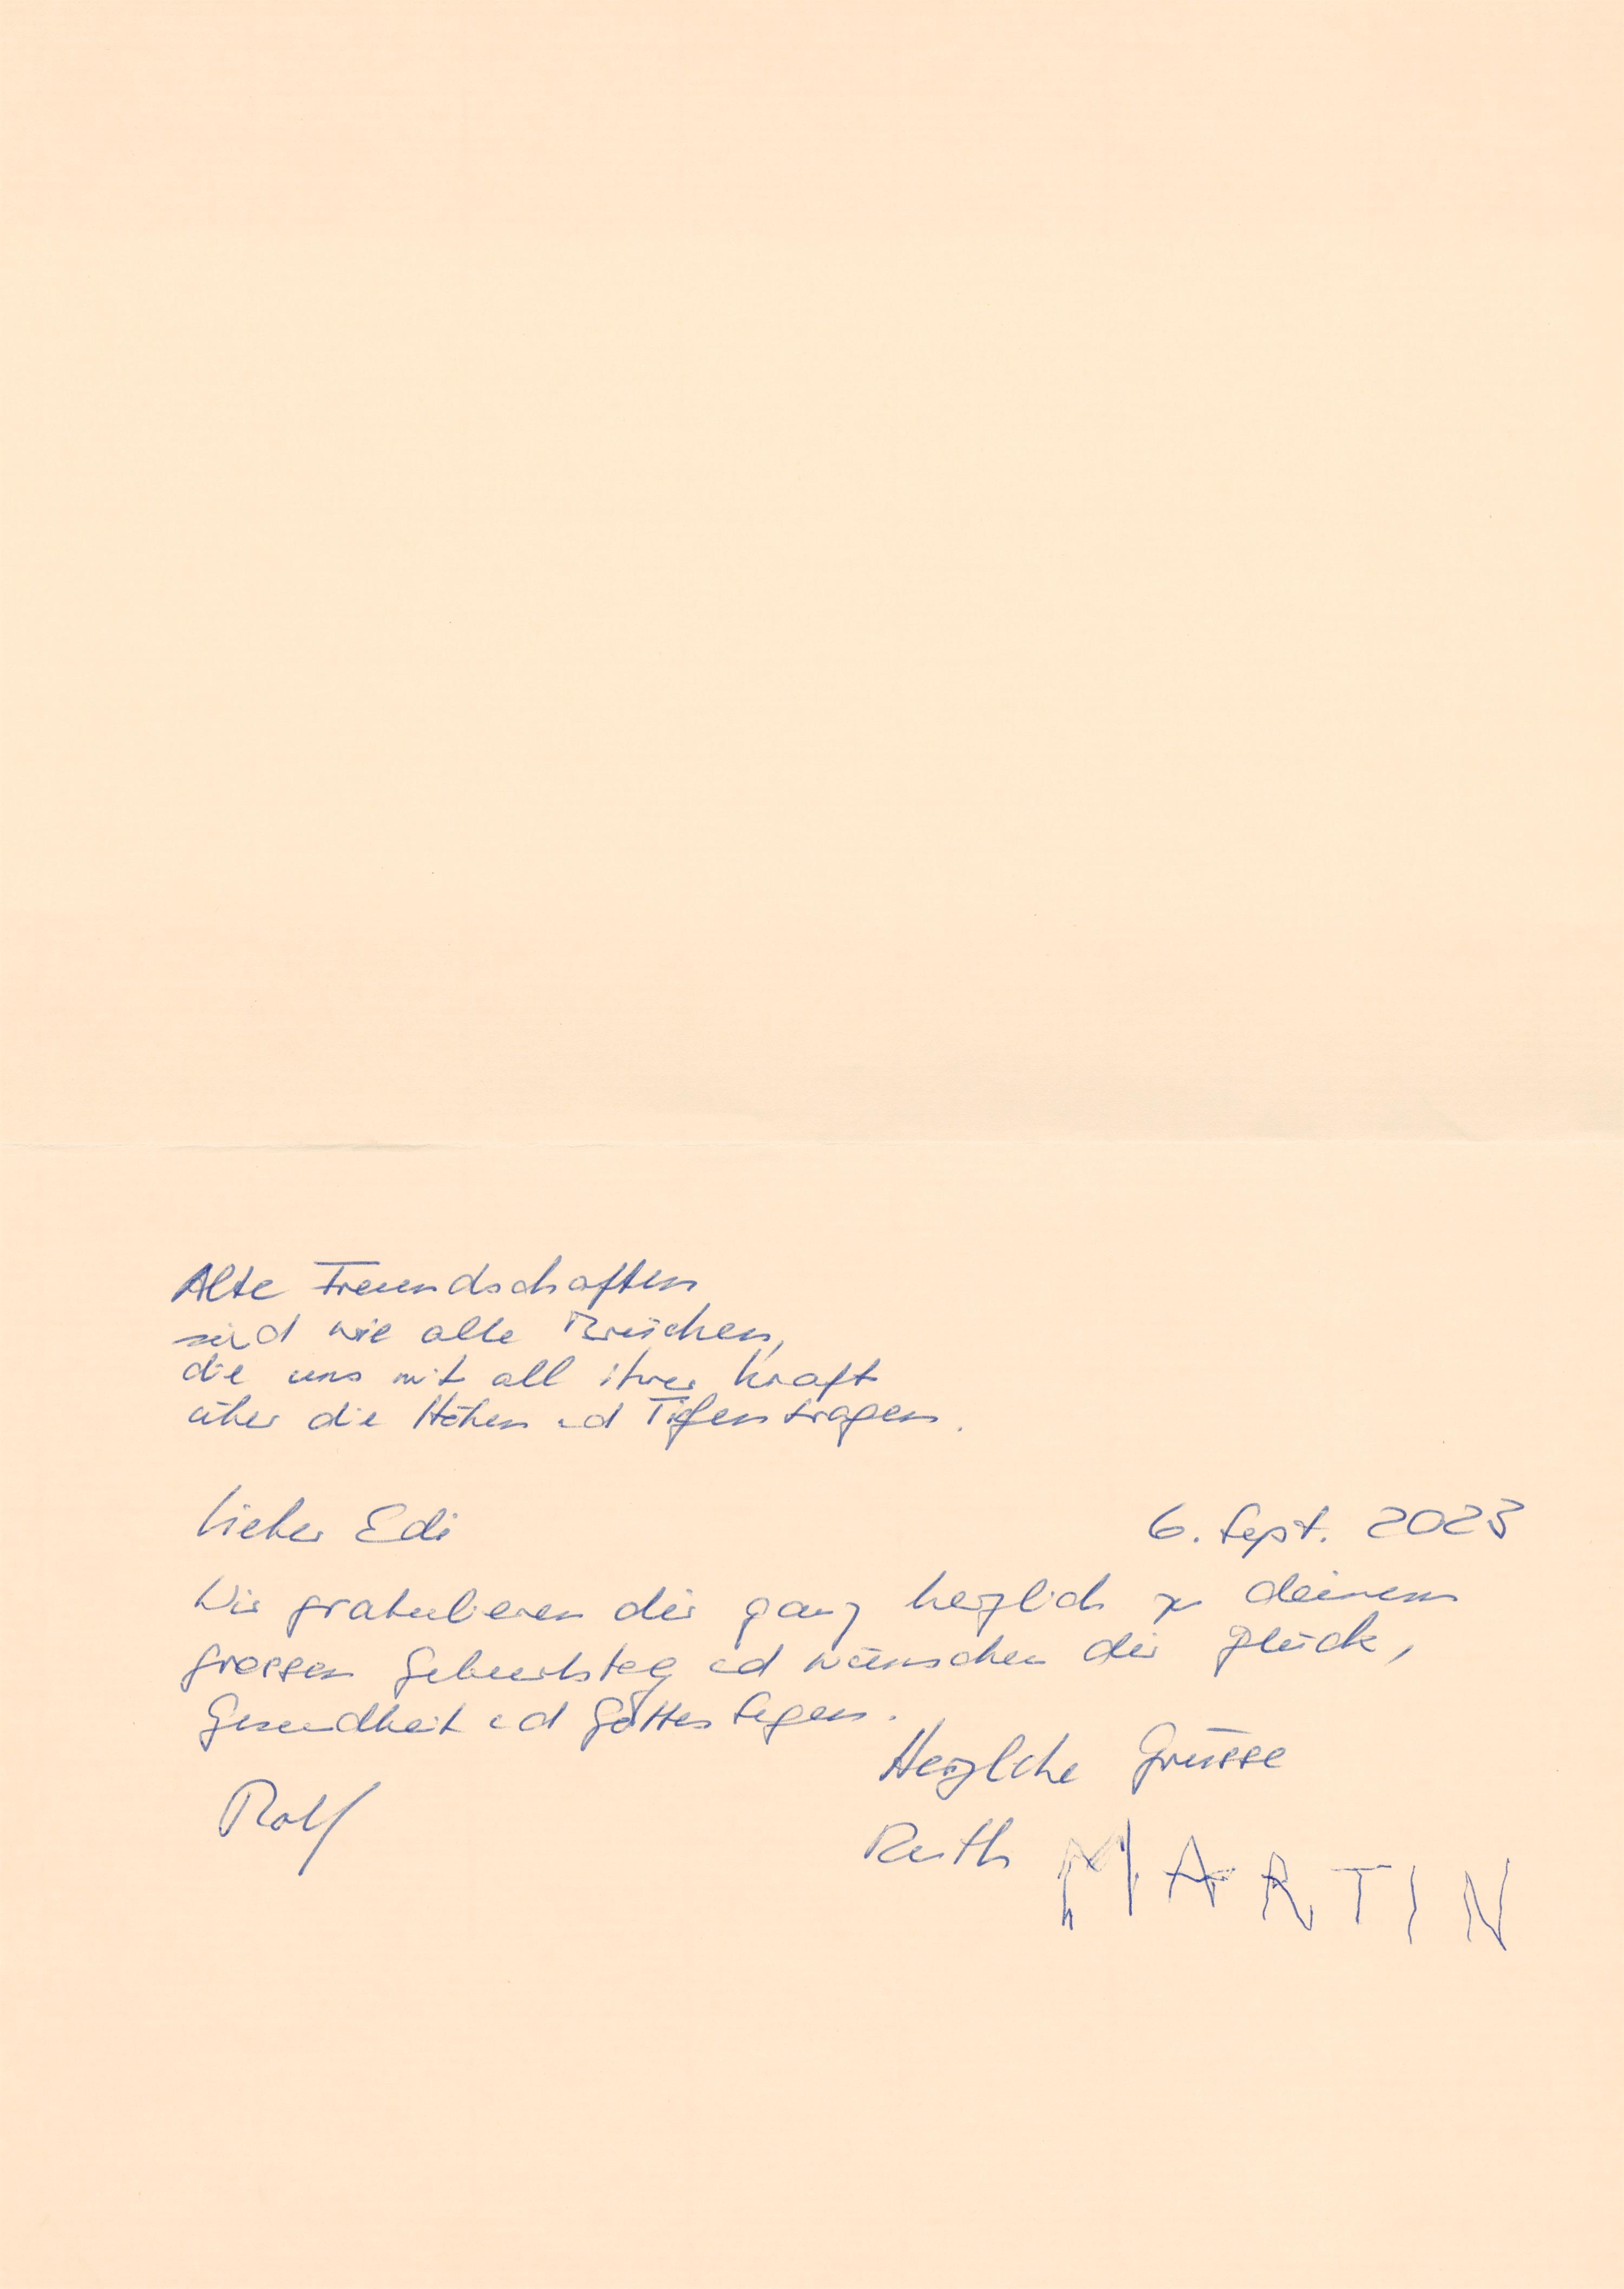 Alte Freundschaften
sind wie alte Brücken,
die uns mit all ihrer Kraft
über die Höhen und Tiefen tragen.
Lieber Edi
6. Sept. 2023
Wir gratulieren dir ganz herzlich zu deinem
grossen Geburtstag und wünschen dir Glück,
Gesundheit und Gottes Segen.
Herzliche Grüsse
Rolf
Ruth MARTIN